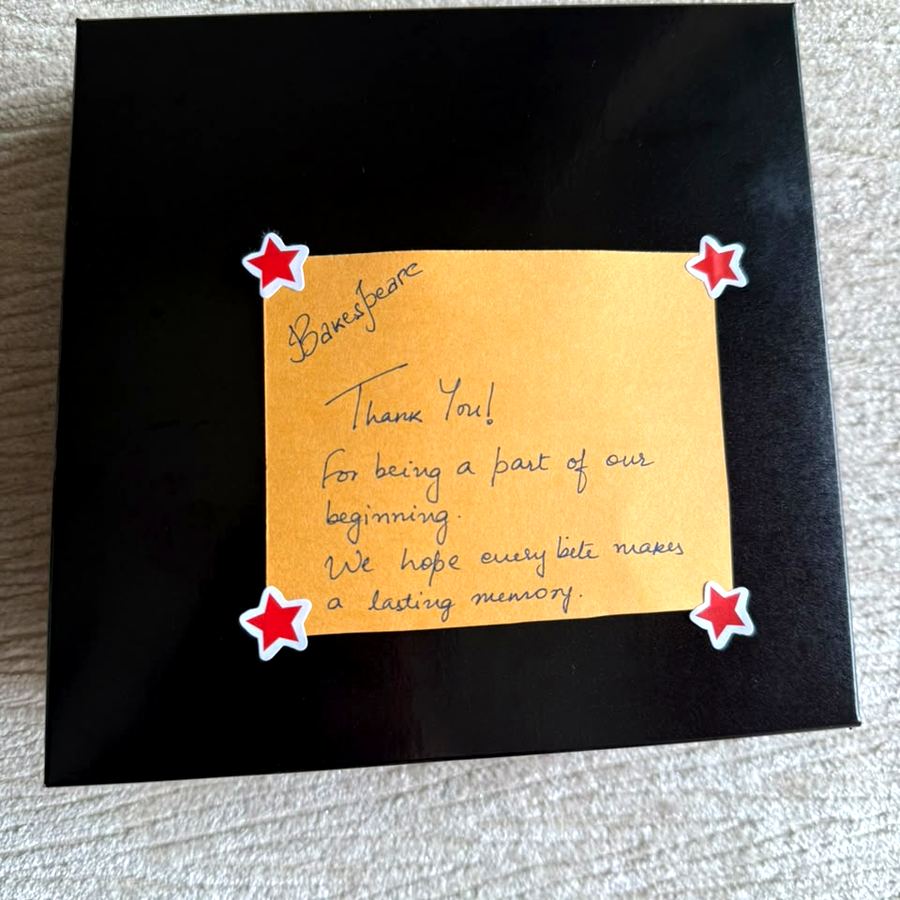 Bakespeare
Thank You!
For being a part of our
beginning.
We hope every bite makes
a lasting memory.